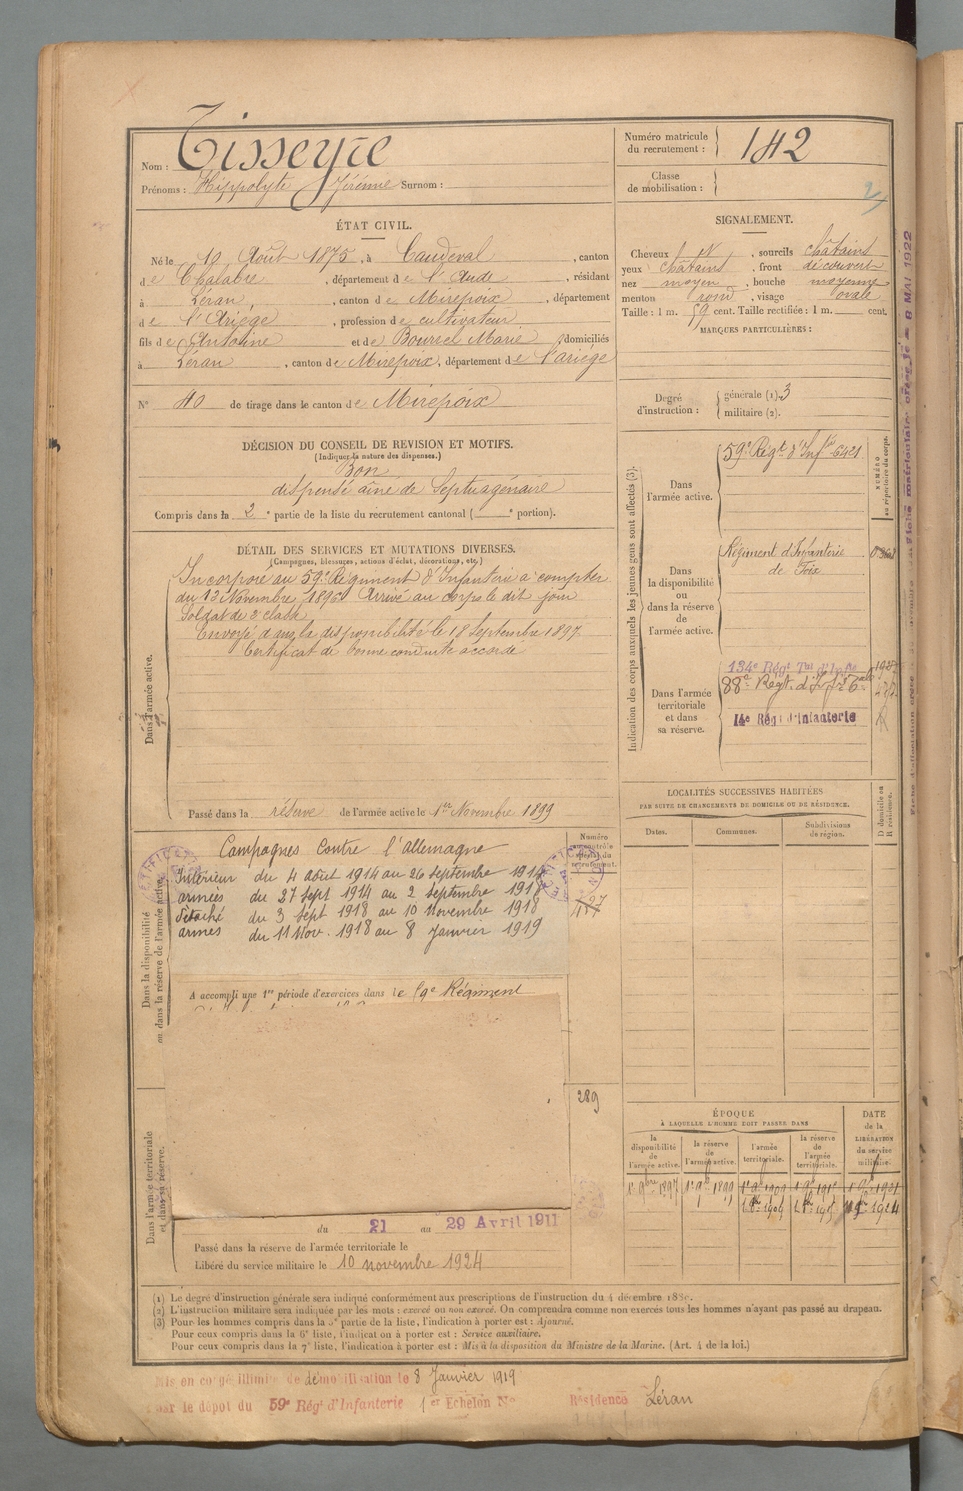 Nom : Tisseyre
Prénoms : Hippolyte Jérémie Surnom :
Numéro matricule du recrutement : 142
Classe de mobilisation :
ÉTAT CIVIL.
Né le 10 Août 1875, à Caudeval, canton
de Chalabre, département de l'Aude, résidant
à Léran, canton de Mirepoix, département
de l'Ariège, profession de cultivateur
fils de Antoine et de Bourrel Marie, domiciliés
à Léran, canton de Mirepoix, département de l'ariège
N° 40 de tirage dans le canton de Mirepoix
SIGNALEMENT.
Cheveux N, sourcils châtains
yeux châtains, front découvert
nez moyen, bouche moyenne
menton rond, visage ovale
Taille : 1 m. 59 cent. Taille rectifiée : 1 m. cent.
MARQUES PARTICULIÈRES :
Degré d'instruction : générale (1). 3
militaire (2).
DÉCISION DU CONSEIL DE REVISION ET MOTIFS.
(Indiquer la nature des dispenses.)
Bon
dispensé aîné de Septuagénaire
Compris dans la 2e partie de la liste du recrutement cantonal ( e portion).
DÉTAIL DES SERVICES ET MUTATIONS DIVERSES.
(Campagnes, blessures, actions d'éclat, décorations, etc.)
Dans l'armée active.
Incorporé au 59e Régiment d'Infanterie à compter
du 12 Novembre 1896. Arrivé au corps le dit jour
Soldat de 2e classe
Envoyé dans la disponibilité le 18 Septembre 1897.
Certificat de bonne conduite accordé
Passé dans la réserve de l'armée active le 1er Novembre 1899
Indication des corps auxquels les jeunes gens sont affectés (3).
NUMÉRO au répertoire du corps.
Dans l'armée active.
59e Régt d'Infie 6421
Dans la disponibilité ou dans la réserve de l'armée active.
Régiment d'Infanterie
de Foix
Dans l'armée territoriale et dans sa réserve.
134e Régt Tal d'Infie
88e Régt. d'Inf
14e Régt d'Infanterie
LOCALITÉS SUCCESSIVES HABITÉES
PAR SUITE DE CHANGEMENTS DE DOMICILE OU DE RÉSIDENCE.
Dates. Communes. Subdivisions de région. D domicile ou R résidence.
Dans la disponibilité ou dans la réserve de l'armée active.
Campagnes contre l'allemagne
Intérieur du 4 août 1914 au 26 septembre 1914
armées du 27 sept 1914 au 2 septembre 1918
détaché du 3 sept 1918 au 10 Novembre 1918
armées du 11 Nov. 1918 au 8 Janvier 1919
A accompli une 1re période d'exercices dans le 59e Régiment
289
Dans l'armée territoriale et dans sa réserve.
du 21 au 29 Avril 1911
Passé dans la réserve de l'armée territoriale le
Libéré du service militaire le 10 novembre 1924
ÉPOQUE
À LAQUELLE L'HOMME DOIT PASSER DANS
la disponibilité de l'armée active. la réserve de l'armée active. l'armée territoriale. la réserve de l'armée territoriale.
DATE de la LIBÉRATION du service militaire.
(1) Le degré d'instruction générale sera indiqué conformément aux prescriptions de l'instruction du 4 décembre 1889.
(2) L'instruction militaire sera indiquée par les mots : exercé ou non exercé. On comprendra comme non exercés tous les hommes n'ayant pas passé au drapeau.
(3) Pour les hommes compris dans la 5e partie de la liste, l'indication à porter est : Ajourné.
Pour ceux compris dans la 6e liste, l'indication à porter est : Service auxiliaire.
Pour ceux compris dans la 7e liste, l'indication à porter est : Mis à la disposition du Ministre de la Marine. (Art. 4 de la loi.)
Mis en congé illimité de démobilisation le 8 Janvier 1919
par le dépôt du 59e Régt d'Infanterie 1er Echelon No Résidence Léran